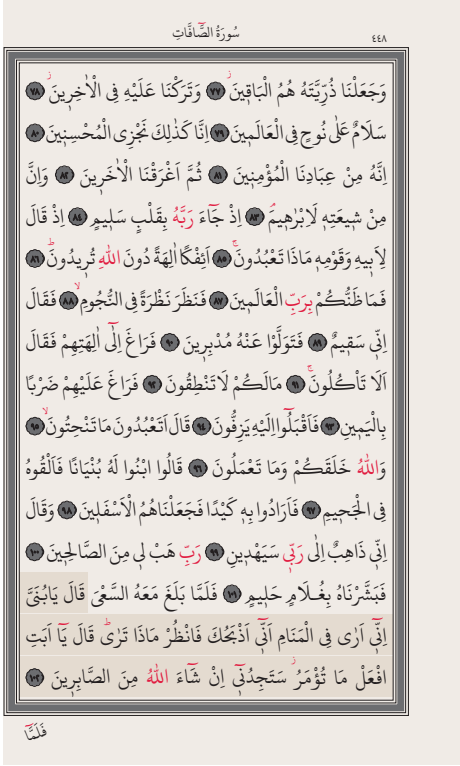 سُورَةُ الصَّٓافَّاتِ
٤٤٨
وَجَعَلْنَا ذُرِّيَّتَهُ هُمُ الْبَاقٖينَ ۘ ﴿٧٧﴾ وَتَرَكْنَا عَلَيْهِ فِي الْاٰخِرٖينَ ۘ ﴿٧٨﴾
سَلَامٌ عَلٰى نُوحٍ فِي الْعَالَمٖينَ ﴿٧٩﴾ اِنَّا كَذٰلِكَ نَجْزِي الْمُحْسِنٖينَ ﴿٨٠﴾
اِنَّهُ مِنْ عِبَادِنَا الْمُؤْمِنٖينَ ﴿٨١﴾ ثُمَّ اَغْرَقْنَا الْاٰخَرٖينَ ﴿٨٢﴾ وَاِنَّ
مِنْ شٖيعَتِهٖ لَاِبْرٰهٖيمَۘ ﴿٨٣﴾ اِذْ جَٓاءَ رَبَّهُ بِقَلْبٍ سَلٖيمٍ ﴿٨٤﴾ اِذْ قَالَ
لِاَبٖيهِ وَقَوْمِهٖ مَاذَا تَعْبُدُونَۚ ﴿٨٥﴾ اَئِفْكًا اٰلِهَةً دُونَ اللّٰهِ تُرٖيدُونَۜ ﴿٨٦﴾
فَمَا ظَنُّكُمْ بِرَبِّ الْعَالَمٖينَ ﴿٨٧﴾ فَنَظَرَ نَظْرَةً فِي النُّجُومِۙ ﴿٨٨﴾ فَقَالَ
اِنّٖي سَقٖيمٌ ﴿٨٩﴾ فَتَوَلَّوْا عَنْهُ مُدْبِرٖينَ ﴿٩٠﴾ فَرَاغَ اِلٰٓى اٰلِهَتِهِمْ فَقَالَ
اَلَا تَأْكُلُونَۚ ﴿٩١﴾ مَالَكُمْ لَا تَنْطِقُونَ ﴿٩٢﴾ فَرَاغَ عَلَيْهِمْ ضَرْبًا
بِالْيَمٖينِ ﴿٩٣﴾ فَاَقْبَلُٓوا اِلَيْهِ يَزِفُّونَ ﴿٩٤﴾ قَالَ اَتَعْبُدُونَ مَا تَنْحِتُونَۙ ﴿٩٥﴾
وَاللّٰهُ خَلَقَكُمْ وَمَا تَعْمَلُونَ ﴿٩٦﴾ قَالُوا ابْنُوا لَهُ بُنْيَانًا فَاَلْقُوهُ
فِي الْجَحٖيمِ ﴿٩٧﴾ فَاَرَادُوا بِهٖ كَيْدًا فَجَعَلْنَاهُمُ الْاَسْفَلٖينَ ﴿٩٨﴾ وَقَالَ
اِنّٖي ذَاهِبٌ اِلٰى رَبّٖي سَيَهْدٖينِ ﴿٩٩﴾ رَبِّ هَبْ لٖي مِنَ الصَّالِحٖينَ ﴿١٠٠﴾
فَبَشَّرْنَاهُ بِغُلَامٍ حَلٖيمٍ ﴿١٠١﴾ فَلَمَّا بَلَغَ مَعَهُ السَّعْيَ قَالَ يَابُنَيَّ
اِنّٖٓي اَرٰى فِي الْمَنَامِ اَنّٖٓي اَذْبَحُكَ فَانْظُرْ مَاذَا تَرٰىۜ قَالَ يَٓا اَبَتِ
افْعَلْ مَا تُؤْمَرُۘ سَتَجِدُنٖٓي اِنْ شَٓاءَ اللّٰهُ مِنَ الصَّابِرٖينَ ﴿١٠٢﴾
فَلَمَّٓا